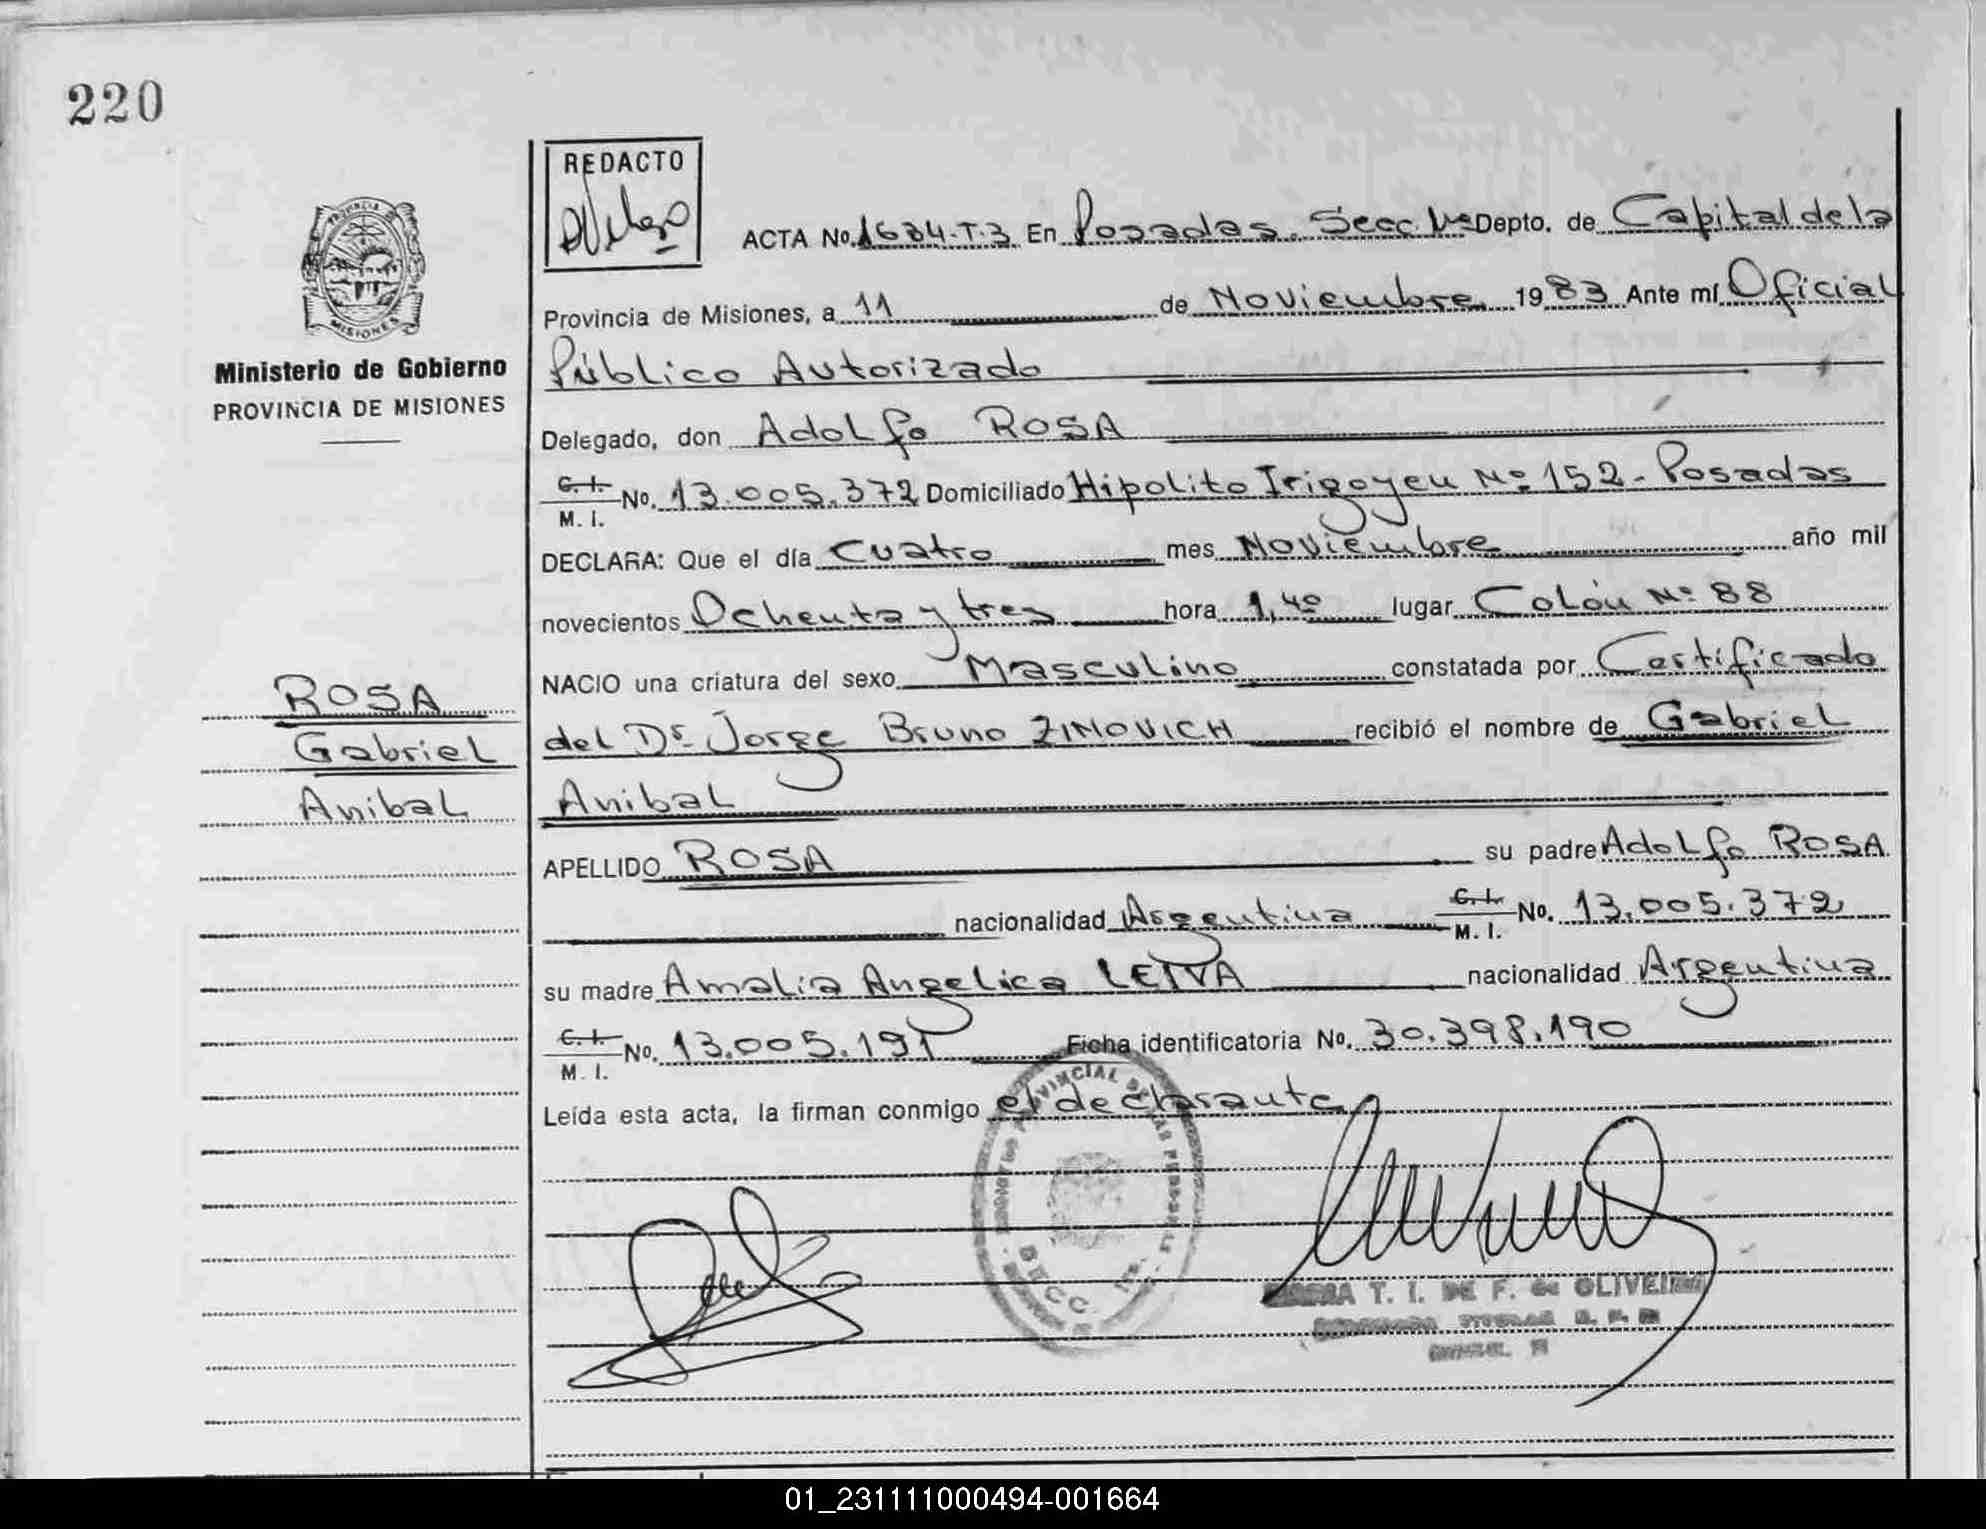 220
REDACTO
ACTA No. 1684-T.3 En Posadas. Secc 1ra Depto. de Capital de la
Provincia de Misiones, a 11 de Noviembre 1983 Ante mí Oficial
Público Autorizado
Delegado, don Adolfo ROSA
C.I. M. I. No. 13.005.372 Domiciliado Hipolito Irigoyen Nº 152 - Posadas
DECLARA: Que el día Cuatro mes Noviembre año mil
novecientos Ochenta y tres hora 1,40 lugar Colón Nº 88
NACIO una criatura del sexo Masculino constatada por Certificado
del Dr. Jorge Bruno ZINOVICH recibió el nombre de Gabriel
Anibal
APELLIDO ROSA su padre Adolfo ROSA
nacionalidad Argentina C.I. M. I. No. 13.005.372
su madre Amalia Angelica LEIVA nacionalidad Argentina
C.I. M. I. No. 13.005.191 Ficha identificatoria No. 30.398.190
Leída esta acta, la firman conmigo el declarante
PROVINCIA DE MISIONES
Ministerio de Gobierno
PROVINCIA DE MISIONES
ROSA
Gabriel
Anibal
PROVINCIAL DE LAS PERSONAS
SECC. 1ra.
T. I. DE F. de OLIVEIRA
01_231111000494-001664